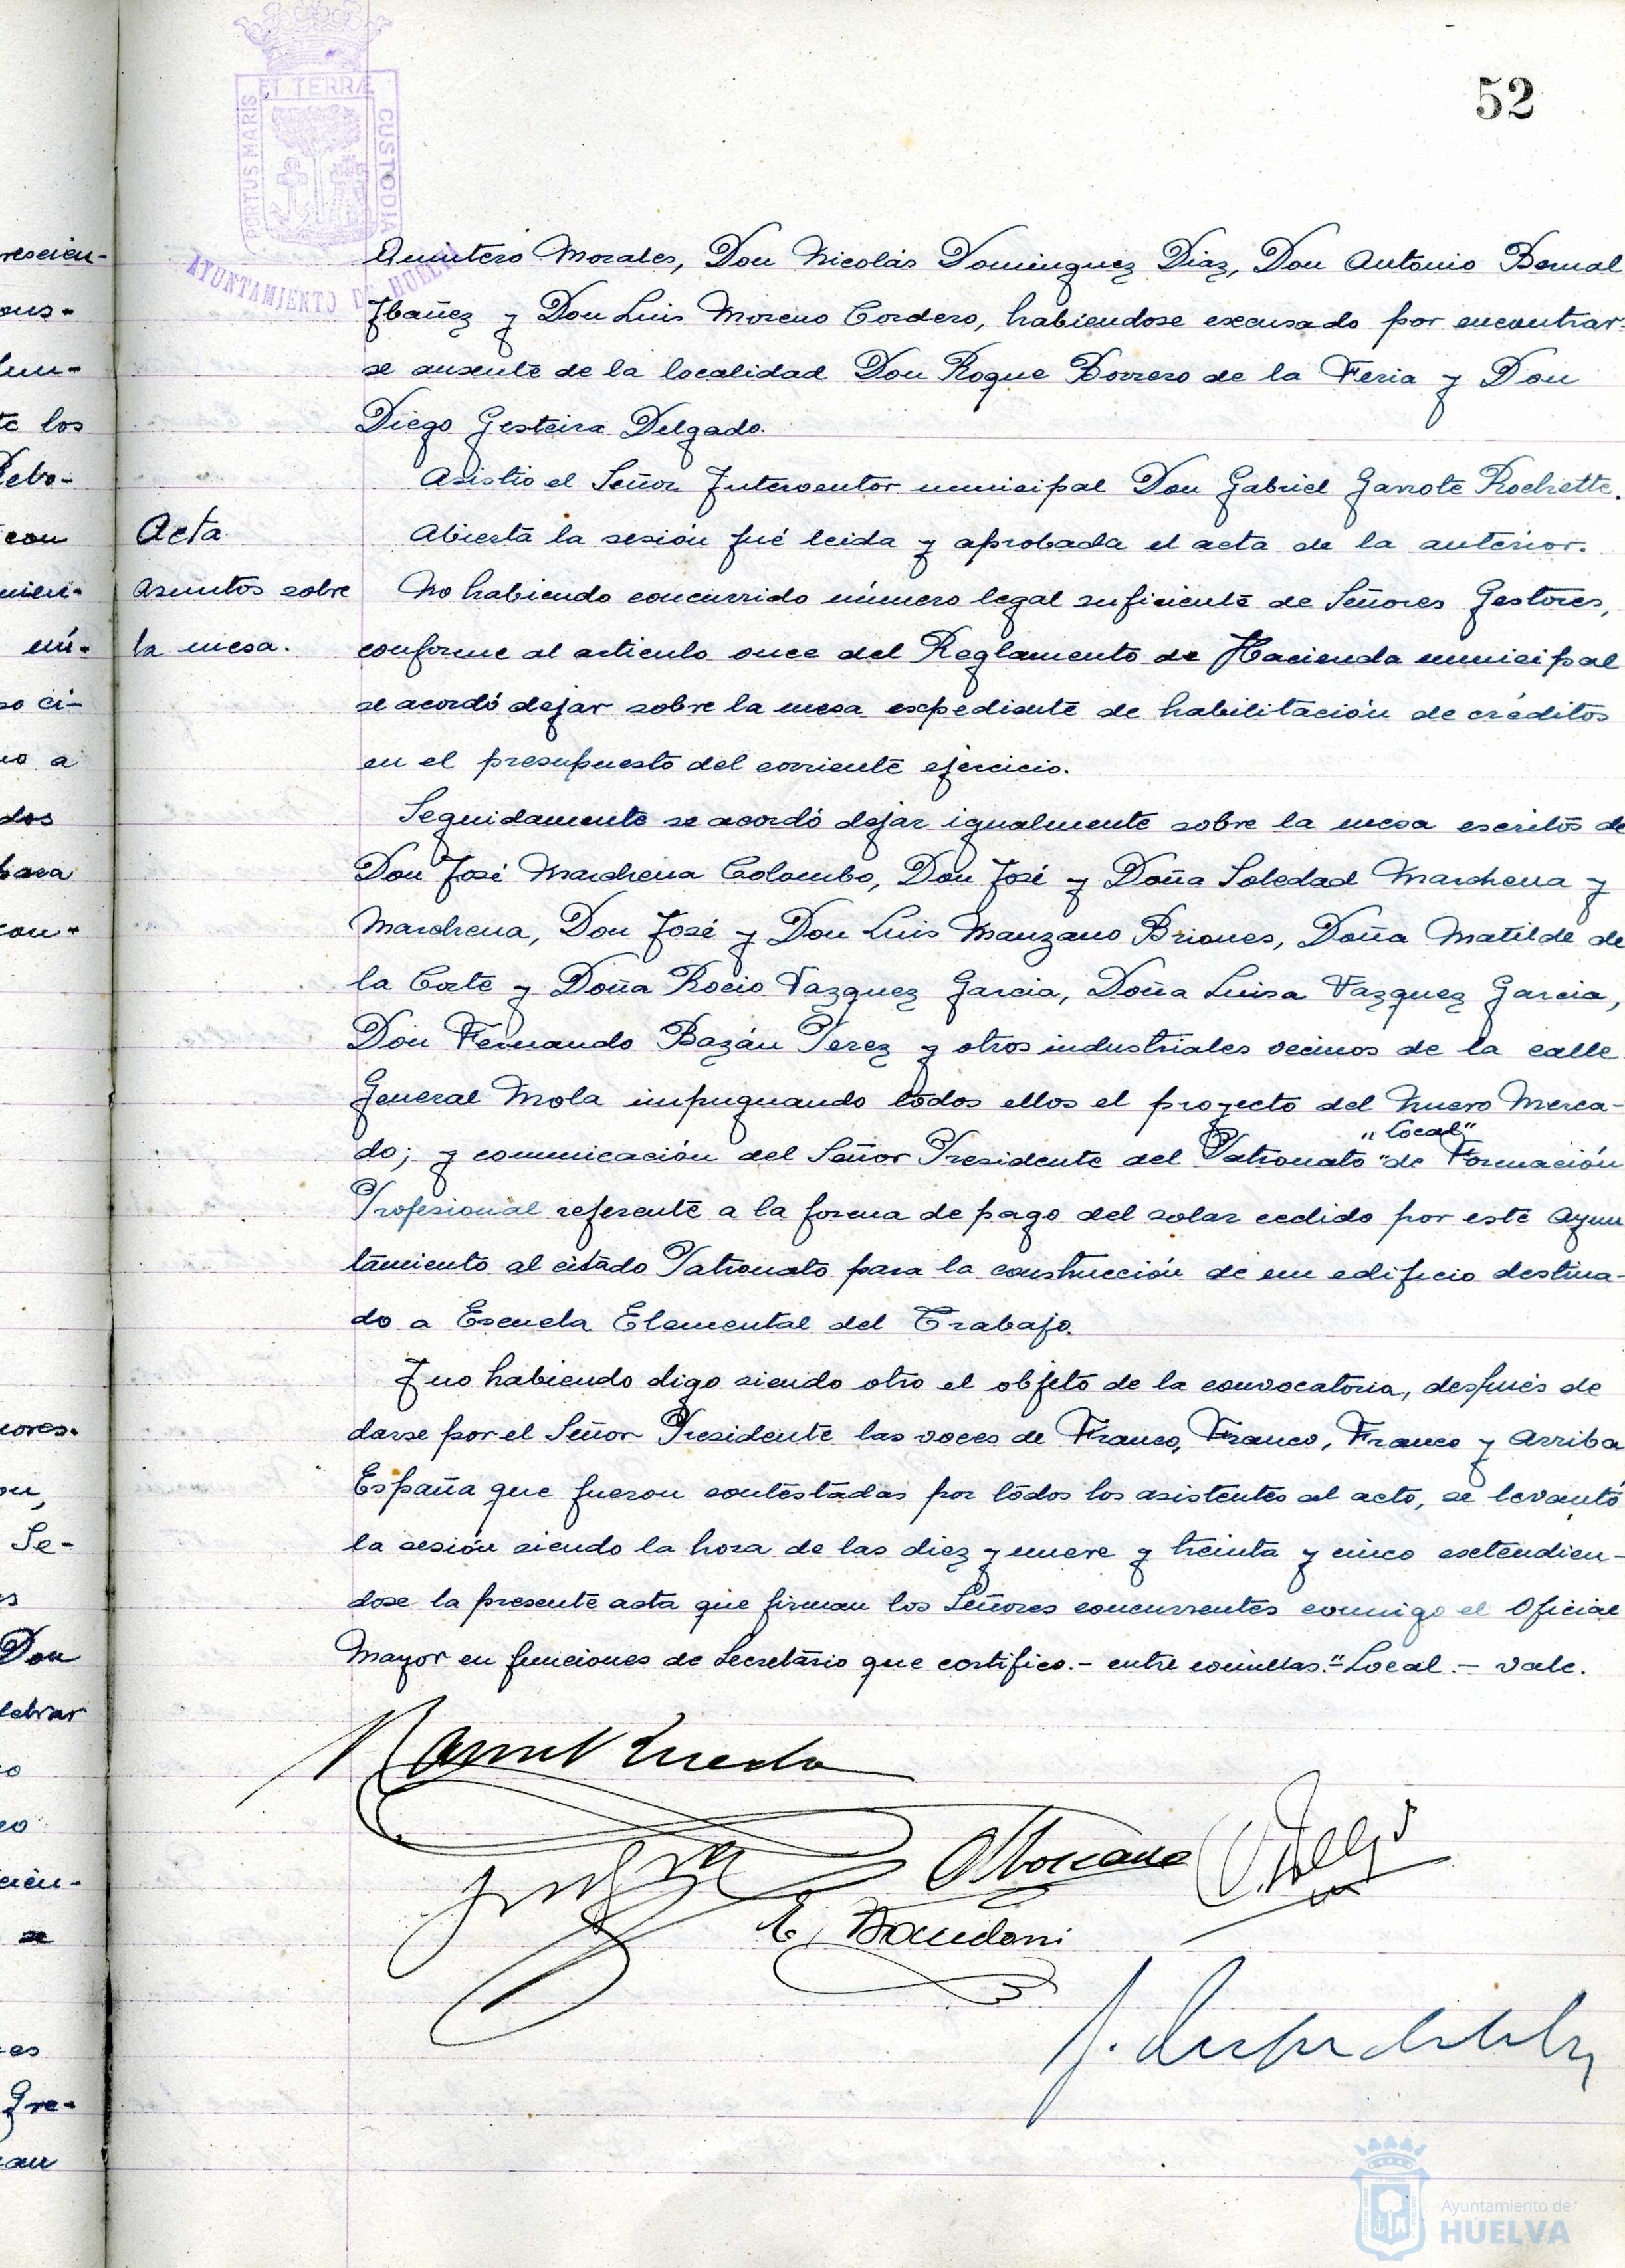 52
PORTUS MARIS ET TERRÆ CUSTODIA
AYUNTAMIENTO DE HUELVA
Quintero Morales, Don Nicolás Dominguez Diaz, Don Antonio Bernal
Ibañez y Don Luis Moreno Cordero, habiendose excusado por encontrar-
se ausente de la localidad Don Roque Borrero de la Feria y Don
Diego Gesteira Delgado.
Asistio el Señor Interventor municipal Don Gabriel Garrote Rochette.
Acta.
Abierta la sesión fué leida y aprobada el acta de la anterior.
Asuntos sobre
la mesa.
No habiendo concurrido número legal suficiente de Señores Gestores,
conforme al articulo once del Reglamento de Hacienda municipal
se acordó dejar sobre la mesa expediente de habilitación de créditos
en el presupuesto del corriente ejercicio.
Seguidamente se acordó dejar igualmente sobre la mesa escritos de
Don José Marchena Colombo, Don José y Doña Soledad Marchena y
Marchena, Don José y Don Luis Manzano Briones, Doña Matilde de
la Corte y Doña Rocio Vazquez Garcia, Doña Luisa Vazquez Garcia,
Don Fernando Bazán Perez y otros industriales vecinos de la calle
General Mola impugnando todos ellos el proyecto del Nuevo Merca-
"Local"
do; y comunicación del Señor Presidente del Patronato "de Formación
Profesional referente a la forma de pago del solar cedido por este Ayun
tamiento al citado Patronato para la construcción de un edificio destina-
do a Escuela Elemental del Trabajo.
Y no habiendo digo siendo otro el objeto de la convocatoria, después de
darse por el Señor Presidente las voces de Franco, Franco, Franco y Arriba
España que fueron contestadas por todos los asistentes al acto, se levantó
la sesión siendo la hora de las diez y nueve y treinta y cinco extendien-
dose la presente acta que firman los Señores concurrentes conmigo el Oficial
Mayor en funciones de Secretario que certifico.- entre comillas."Local.- vale.
Ayuntamiento de
HUELVA